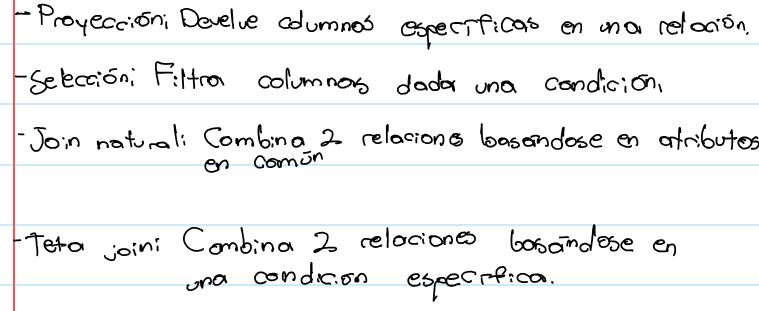 - Proyección; Develve columnas específicas en una relación.
- Selección; Filtra columnas dada una condición,
- Join natural: Combina 2 relaciones basandose en atributos
en común
- Teta join: Combina 2 relaciones basándose en
una condición específica.